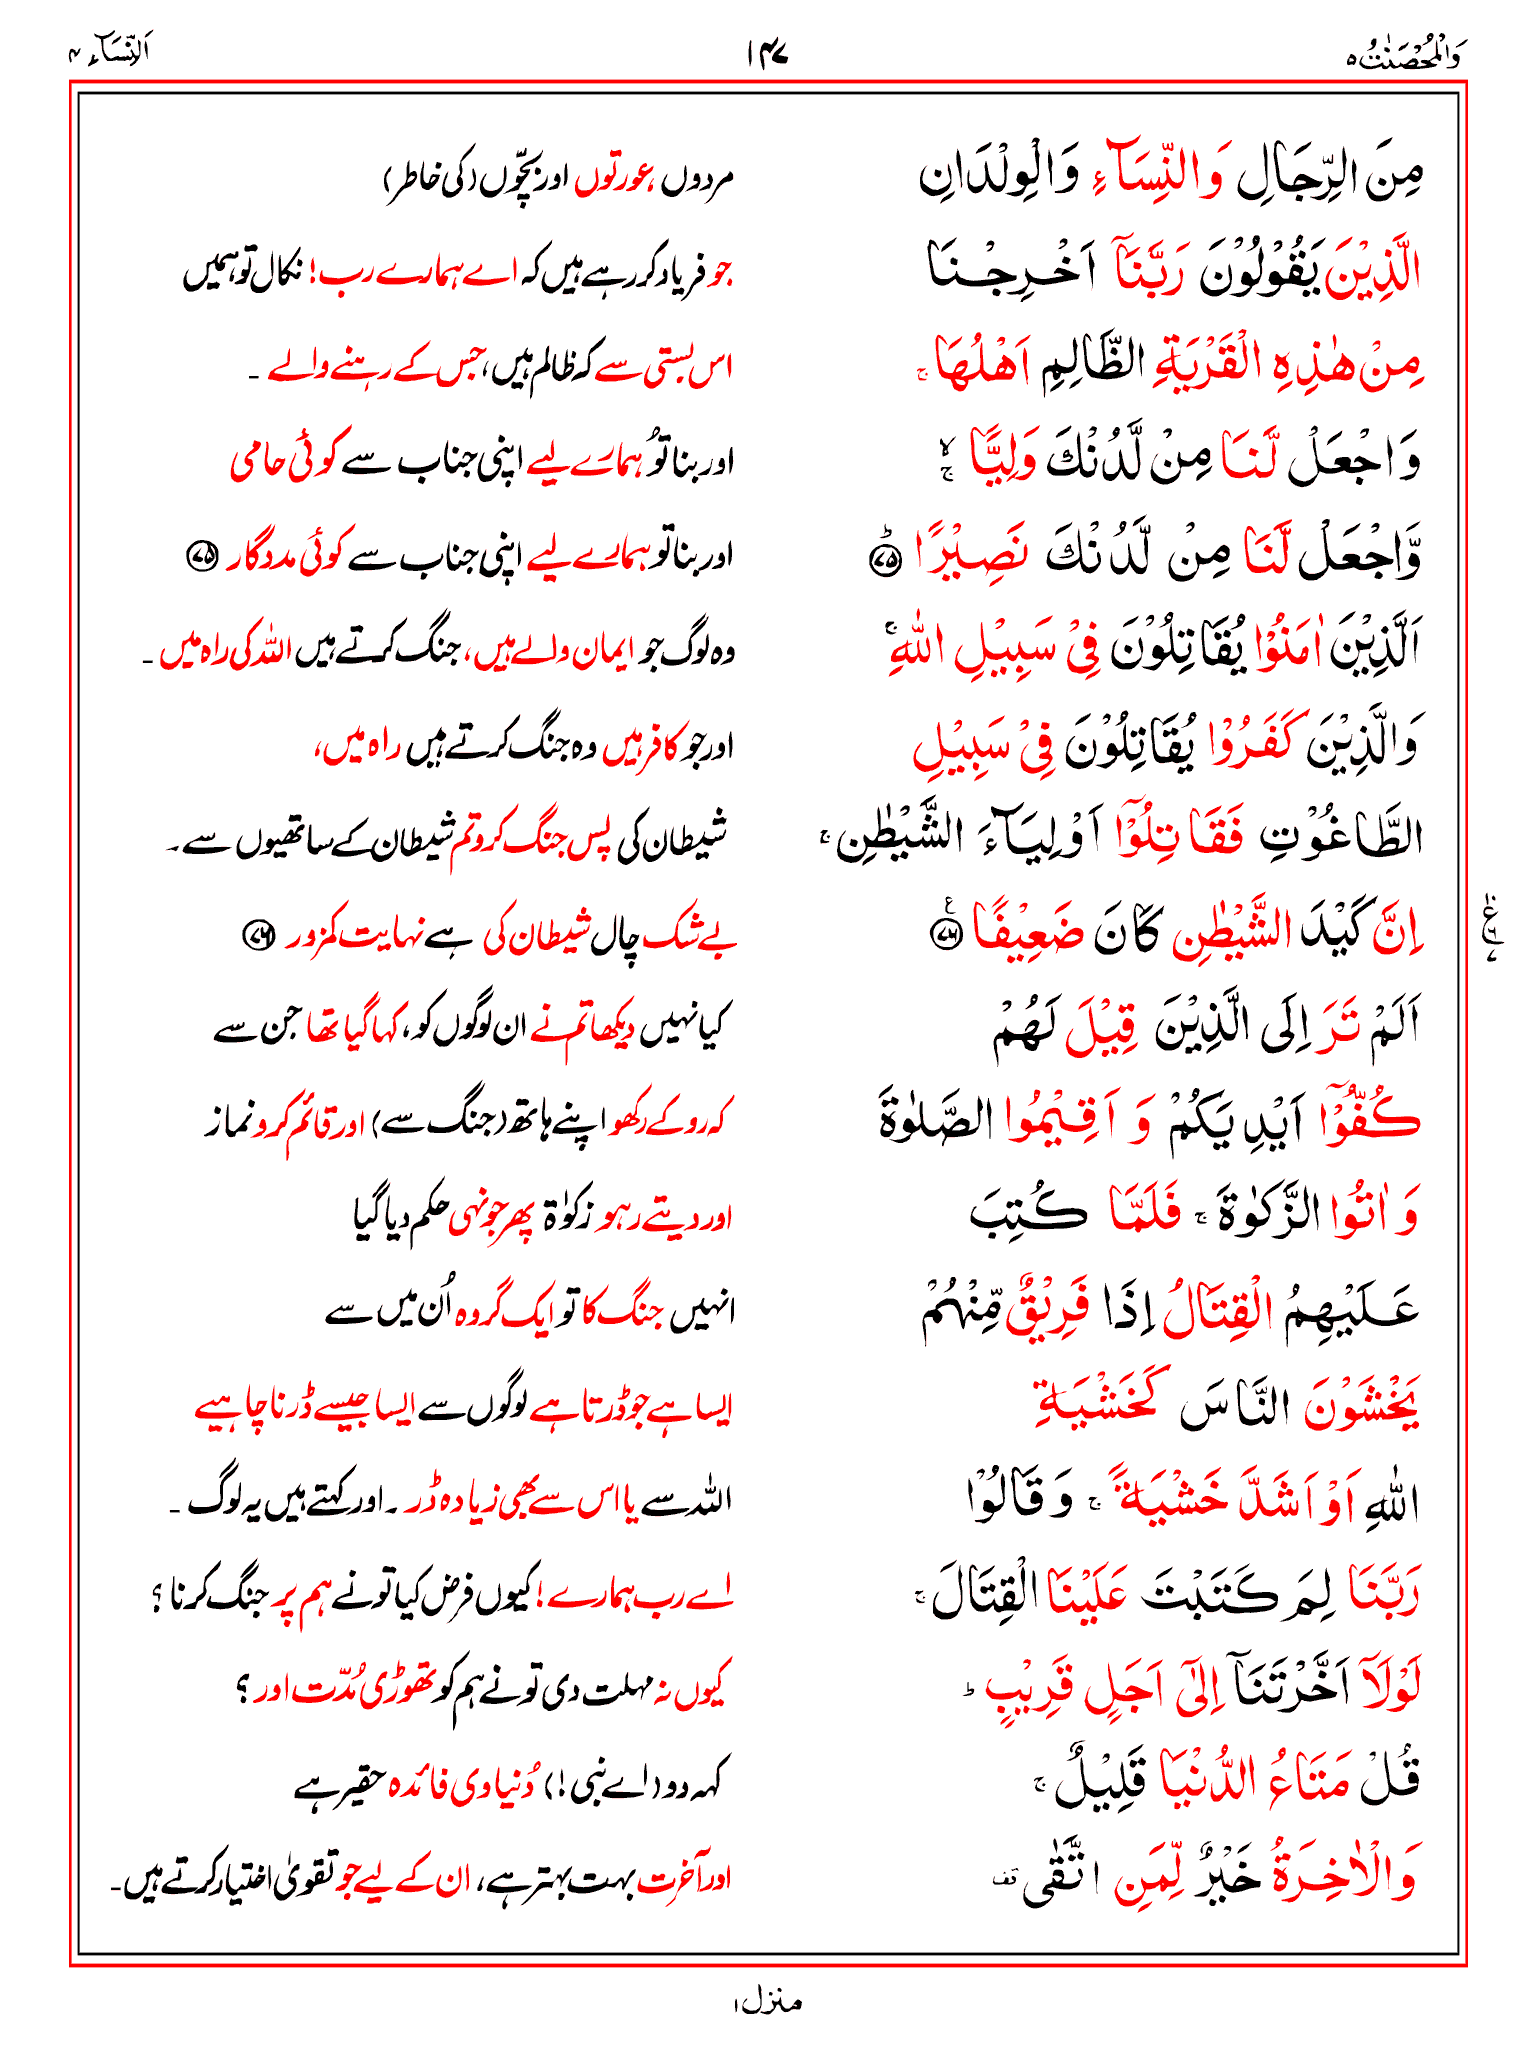 وَالْمُحْصَنٰتُ ۵ ۱۴۷ اَلنِّسَآء ۴
مِنَ الرِّجَالِ وَالنِّسَآءِ وَالْوِلْدَانِ مردوں ،عورتوں اور بچّوں (کی خاطر)
الَّذِيْنَ يَقُوْلُوْنَ رَبَّنَآ اَخْرِجْنَا جو فریاد کر رہے ہیں کہ اے ہمارے رب! نکال تو ہمیں
مِنْ هٰذِهِ الْقَرْيَةِ الظَّالِمِ اَهْلُهَا ۚ اس بستی سے کہ ظالم ہیں، جس کے رہنے والے ۔
وَاجْعَلْ لَّنَا مِنْ لَّدُنْكَ وَلِيًّا ۙۚ اور بنا تُو ہمارے لیے اپنی جناب سے کوئی حامی
وَّاجْعَلْ لَّنَا مِنْ لَّدُنْكَ نَصِيْرًا ؕ ﴿۷۵﴾ اور بنا تو ہمارے لیے اپنی جناب سے کوئی مددگار ﴿۷۵﴾
اَلَّذِيْنَ اٰمَنُوْا يُقَاتِلُوْنَ فِىْ سَبِيْلِ اللّٰهِ ۚ وہ لوگ جو ایمان والے ہیں، جنگ کرتے ہیں اللہ کی راہ میں ۔
وَالَّذِيْنَ كَفَرُوْا يُقَاتِلُوْنَ فِىْ سَبِيْلِ اور جو کافر ہیں وہ جنگ کرتے ہیں راہ میں،
الطَّاغُوْتِ فَقَاتِلُوْٓا اَوْلِيَآءَ الشَّيْطٰنِ ۚ شیطان کی پس جنگ کرو تم شیطان کے ساتھیوں سے۔
اِنَّ كَيْدَ الشَّيْطٰنِ كَانَ ضَعِيْفًا ﴿۷۶﴾ ع بے شک چال شیطان کی ہے نہایت کمزور ﴿۷۶﴾
۱۰ ع ۶ ۷
اَلَمْ تَرَ اِلَى الَّذِيْنَ قِيْلَ لَهُمْ کیا نہیں دیکھا تم نے ان لوگوں کو، کہا گیا تھا جن سے
كُفُّوْٓا اَيْدِيَكُمْ وَ اَقِيْمُوا الصَّلٰوةَ کہ روکے رکھو اپنے ہاتھ (جنگ سے) اور قائم کرو نماز
وَ اٰتُوا الزَّكٰوةَ ۚ فَلَمَّا كُتِبَ اور دیتے رہو زکوٰۃ پھر جونہی حکم دیا گیا
عَلَيْهِمُ الْقِتَالُ اِذَا فَرِيْقٌ مِّنْهُمْ انہیں جنگ کا تو ایک گروہ اُن میں سے
يَخْشَوْنَ النَّاسَ كَخَشْيَةِ ایسا ہے جو ڈرتا ہے لوگوں سے ایسا جیسے ڈرنا چاہیے
اللّٰهِ اَوْ اَشَدَّ خَشْيَةً ۚ وَ قَالُوْا اللہ سے یا اس سے بھی زیادہ ڈر ۔ اور کہتے ہیں یہ لوگ ۔
رَبَّنَا لِمَ كَتَبْتَ عَلَيْنَا الْقِتَالَ ۚ اے رب ہمارے! کیوں فرض کیا تو نے ہم پر جنگ کرنا ؟
لَوْلَآ اَخَّرْتَنَآ اِلٰٓى اَجَلٍ قَرِيْبٍ ؕ کیوں نہ مہلت دی تو نے ہم کو تھوڑی مُدّت اور ؟
قُلْ مَتَاعُ الدُّنْيَا قَلِيْلٌ ۚ کہہ دو (اے نبی!) دُنیاوی فائدہ حقیر ہے
وَالْاٰخِرَةُ خَيْرٌ لِّمَنِ اتَّقٰى قف اور آخرت بہت بہتر ہے، ان کے لیے جو تقویٰ اختیار کرتے ہیں۔
منزل ۱